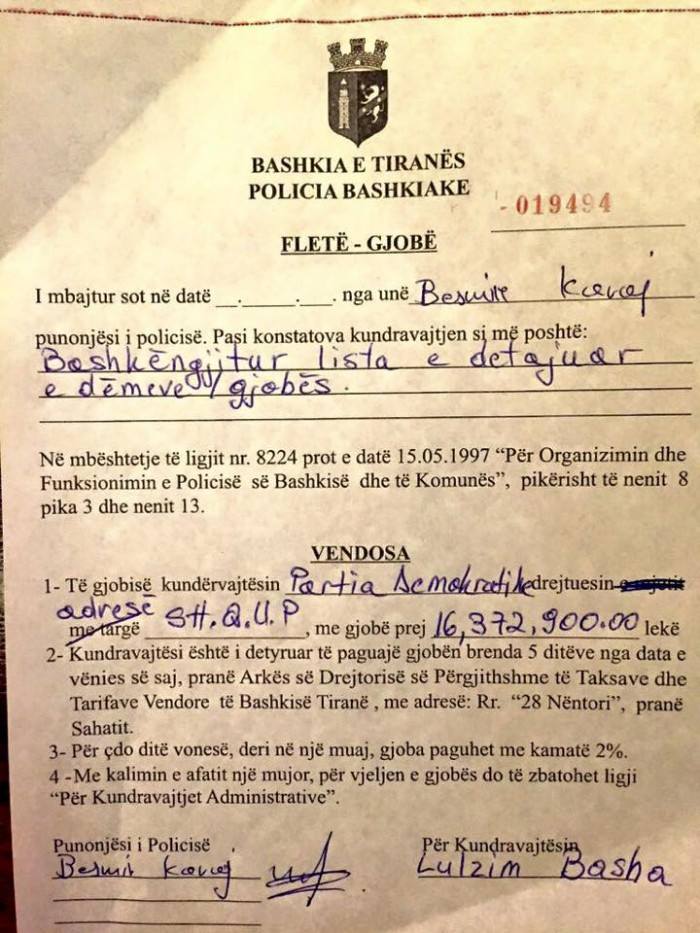 BASHKIA E TIRANËS
POLICIA BASHKIAKE
- 019494
FLETË - GJOBË
I mbajtur sot në datë __.__.__. nga unë Besmir Kavaj
punonjësi i policisë. Pasi konstatova kundravajtjen si më poshtë:
Bashkëngjitur lista e detajuar
e dëmeve/gjobës.
Në mbështetje të ligjit nr. 8224 prot e datë 15.05.1997 “Për Organizimin dhe
Funksionimin e Policisë së Bashkisë dhe të Komunës”, pikërisht të nenit 8
pika 3 dhe nenit 13.
VENDOSA
1- Të gjobisë kundërvajtësin Partia Demokratike drejtuesin
adresë
me targë SH.Q.U.P, me gjobë prej 16,372,900.00 lekë
2- Kundravajtësi është i detyruar të paguajë gjobën brenda 5 ditëve nga data e
vënies së saj, pranë Arkës së Drejtorisë së Përgjithshme të Taksave dhe
Tarifave Vendore të Bashkisë Tiranë , me adresë: Rr. “28 Nëntori”, pranë
Sahatit.
3- Për çdo ditë vonesë, deri në një muaj, gjoba paguhet me kamatë 2%.
4 -Me kalimin e afatit një mujor, për vjeljen e gjobës do të zbatohet ligji
“Për Kundravajtjet Administrative”.
Punonjësi i Policisë Për Kundravajtësin
Besmir Kavaj Lulzim Basha